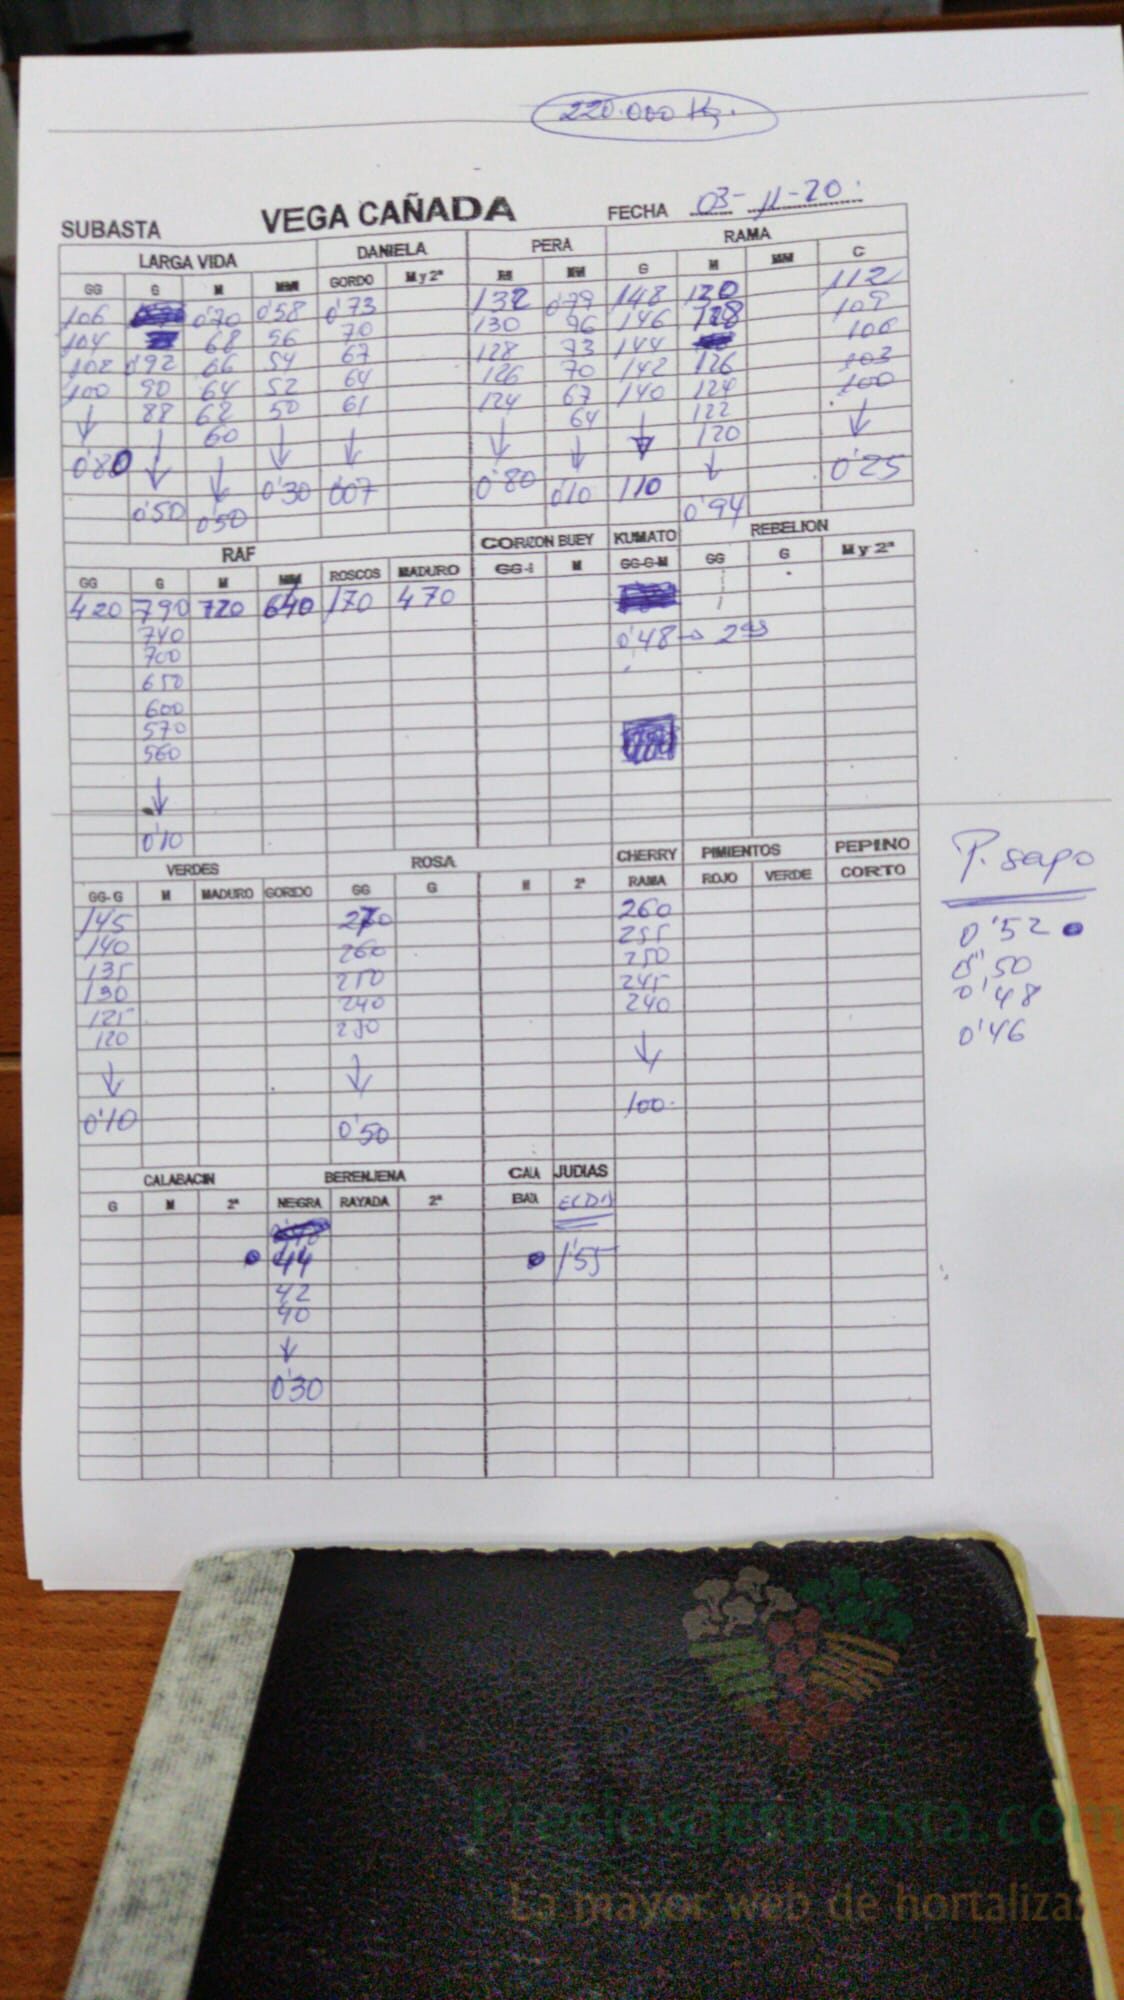 220.000 Kg.
SUBASTA VEGA CAÑADA FECHA 03-11-20.
LARGA VIDA DANIELA PERA RAMA
GG G M MM GORDO M y 2ª M MM G M MM C
106 0'70 0'58 0'73 132 0'79 148 130 112
104 68 56 70 130 146 128 109
102 0'92 66 54 67 128 73 144 106
100 90 64 52 64 126 70 142 126 103
88 62 50 61 124 67 140 124 100
60 64 122
120
0'80 0'30 0'80 0'10 110 0'25
0'50 0'50 0'94
RAF CORZON BUEY KUMATO REBELION
GG G M MM ROSCOS MADURO GG-G M GG-G-M GG G M y 2ª
420 790 720 640 170 470
740 0'48 → 2ªs
700
650
600
570
560
0'10
VERDES ROSA CHERRY PIMIENTOS PEPINO
GG-G M MADURO GORIDO GG G M 2ª RAMA ROJO VERDE CORTO
145 270 260
140 260 255
135 250 250
130 240 245
125 230 240
120
0'10 100
0'50
P. sapo
0'52
0'50
0'48
0'46
CALABACIN BERENJENA CALA JUDIAS
G M 2ª NEGRA RAYADA 2ª BAX
44 1'55
42
40
0'30
Preciosdesubasta.com
La mayor web de hortalizas